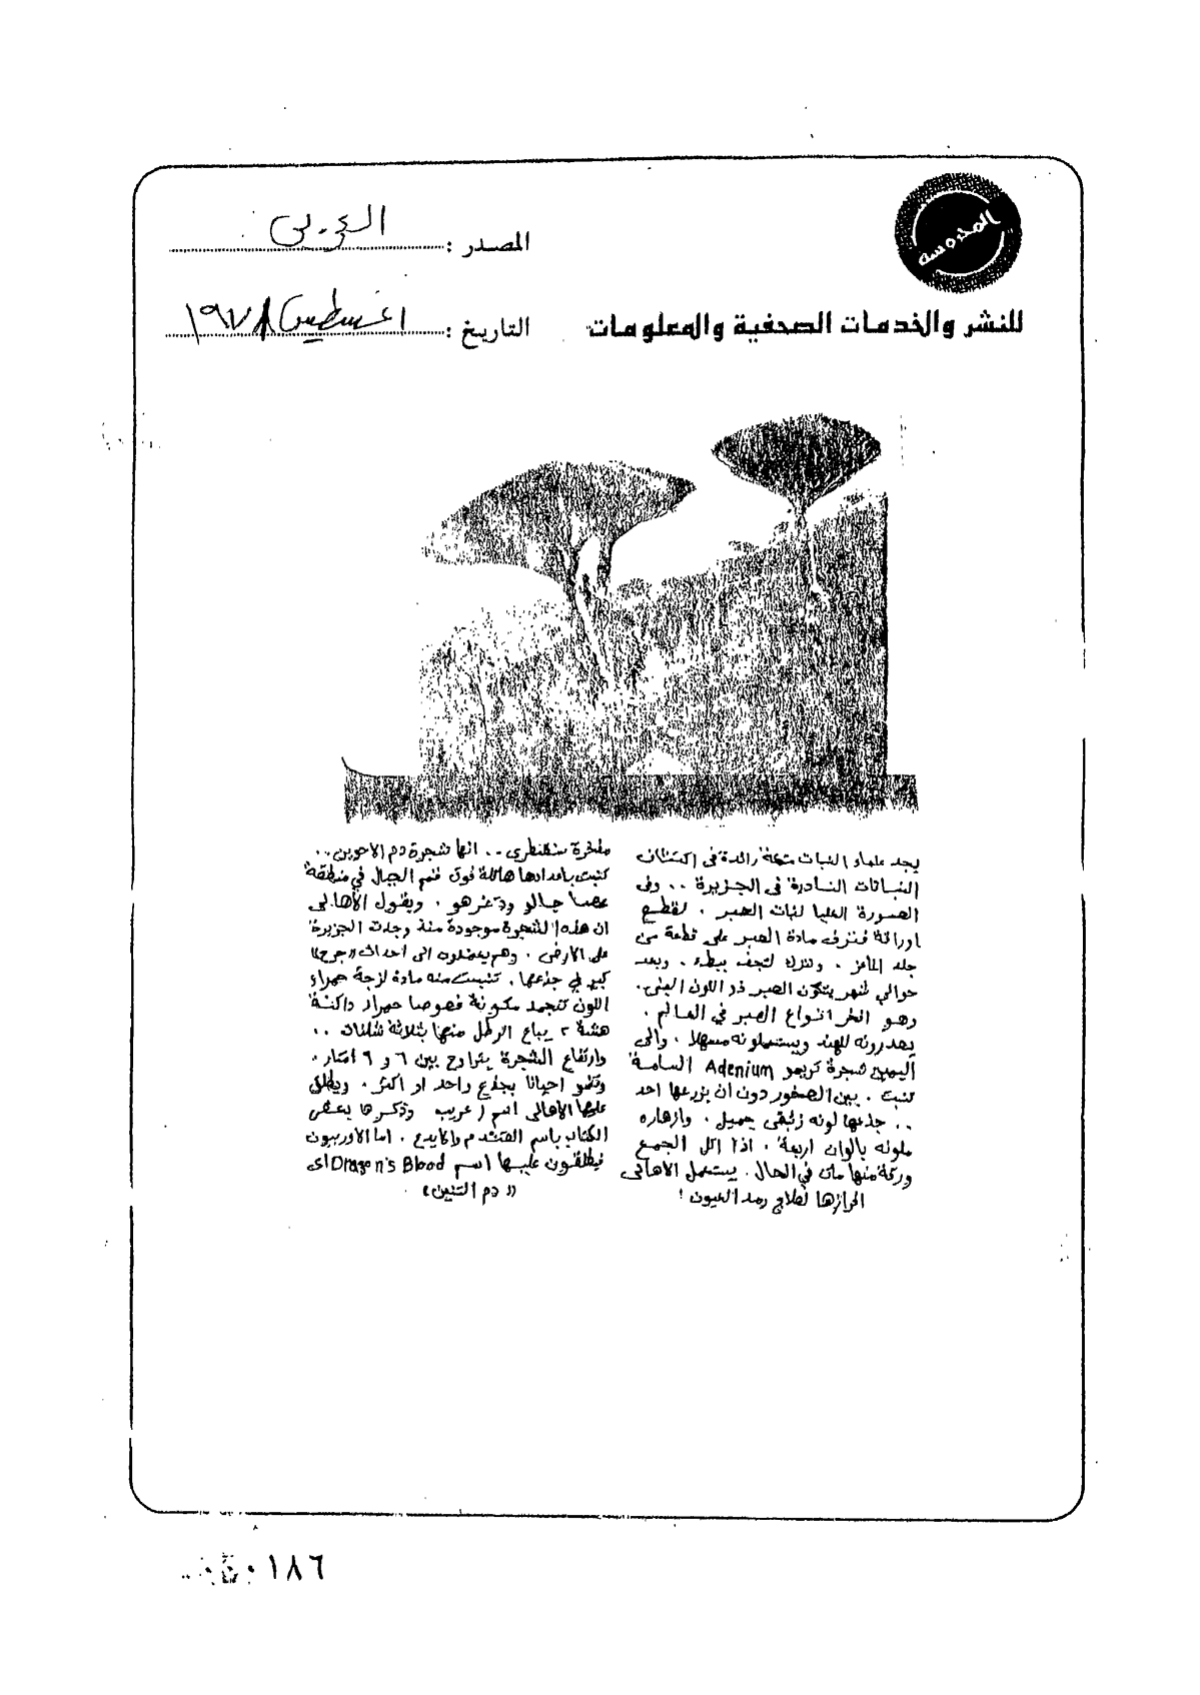 المحروسة
للنشر والخدمات الصحفية والمعلومات
المصدر : العربى
التاريخ : اغسطس ١٩٧٨
يجد علماء النبات متعة زائدة فى اكتشاف
النباتات النادرة فى الجزيرة .. وفى
الصورة العليا نبات الصبر . تقطع
اوراقه فتنزف مادة الصبر على قطعة من
جلد الماعز . وتترك لتجف ببطء . وبعد
حوالي شهر يتكون الصبر ذو اللون البنى.
وهو افخر انواع الصبر في العالم .
يصدرونه للهند ويستعملونه مسهلا . والى
اليمين شجرة تريمو Adenium السامة
تنبت . بين الصخور دون ان يزرعها احد
.. جذعها لونه زئبقى جميل . وازهاره
ملونه بالوان اربعة . اذا اكل الجمع
ورقة منها مات في الحال . يستعمل الاهالى
افرازها لعلاج رمد العيون !
مفخرة سقطرى .. انها شجرة دم الاخوين ..
تنبت باعدادها هائلة فوق قمم الجبال في منطقة
جالو ودعرهو . ويقول الأهالى
ان هذه الشجرة موجودة منذ وجدت الجزيرة
على الأرض . وهم يعمدون الى احداث «جرح»
كبير في جذعها . تنبعث منه مادة لزجة حمراء
اللون تتجمد مكونة فصوصا حمراء داكنة
هشة ، يباع الرطل منها بثلاثة شلنات ..
وارتفاع الشجرة يتراوح بين ٦ و ٩ امتار .
وتنمو احيانا بجذع واحد او اكثر . ويطلق
عليها الأهالى اسم اعريب وذكرها بعض
الكتاب باسم والايدع . اما الاوربيون
فيطلقون عليها اسم Dragon's Blood اى
« دم التنين »
١٨٦